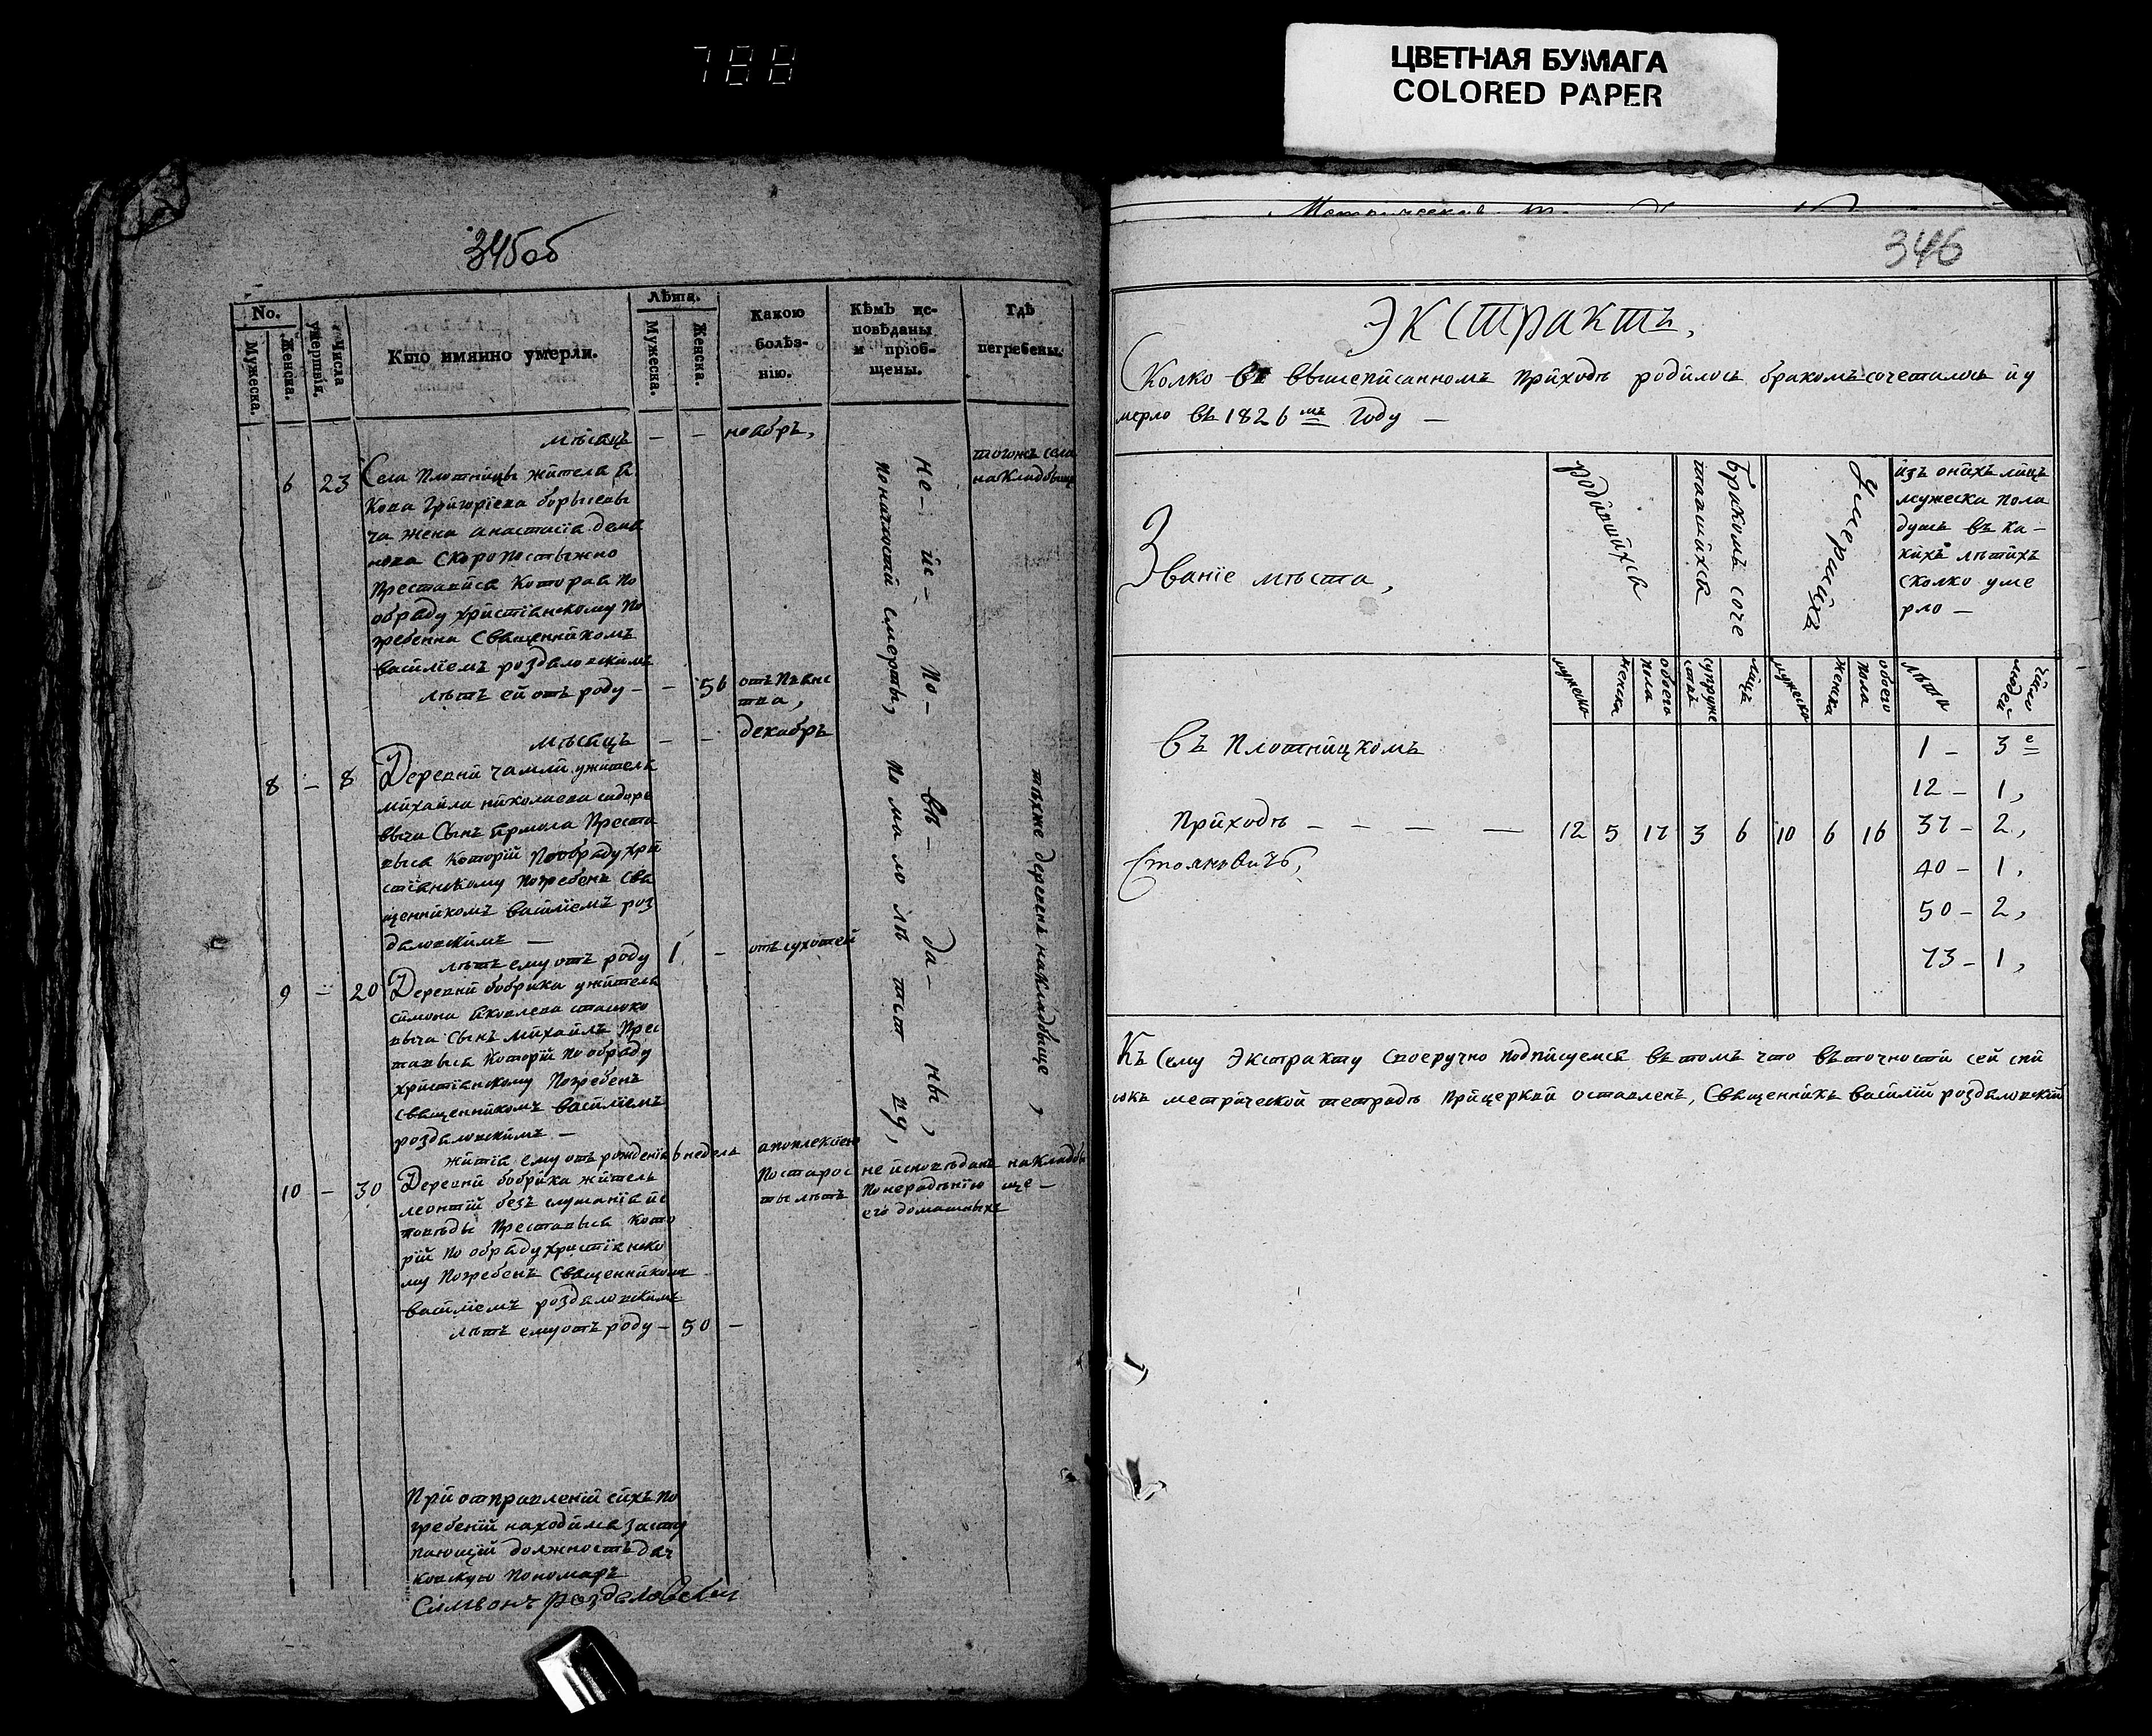 788
ЦВЕТНАЯ БУМАГА
COLORED PAPER
345об
No.
Мужеска.
Женска.
Числа
умертвія.
Кто имянно умерли.
Лѣта.
Мужеска.
Женска.
Какою
болѣз-
нію.
Кѣмъ ис-
повѣданы
и пріоб-
щены.
Гдѣ
погребены.
мѣсяцъ — — ноябръ,
6 23 Села Плотницы жителя я
кова Григоріева борысевы
ча жена анастасія демя
нова скоропостыжно
Преставися Которая по
обряду христіанскому По
гребенна Священникомъ
василіемъ роздяловскимъ
лѣтъ ей отъ роду — — 56 отъ Пянс
тва,
не— ис— по— вѣ— да— ны,
по наглостй смерты,
тогожъ села
на Кладбище
мѣсяцъ — — декабръ
8 — 8 Деревнй чамлй ужителя
михайла николаева сидоре
выча Сынъ ярмола Преста
выся Который Пообряду хри
стіанскому погребенъ Свя
щенникомъ василіемъ роз
дяловскимъ —
лѣтъ ему отъ роду 1. — отъ сухотей
по ма ло лѣ тст ву,
тѣхже деревня на Кладбище,
9 — 20 Деревнй бобрика ужителя
симона яковлева станоко
выча Сынъ михайлъ Прес
тавыся Который По обряду
христіанскому Погребенъ
священникомъ василіемъ
роздяловскимъ —
житія ему отъ рожденія 6 недель апоплексіею
10 — 30 Деревнй бобрика житель
леонтій безъ слушанія ис
повѣды Преставыся Кото
рій По обряду христіанско
му Погребенъ Священникомъ
василіемъ роздяловскимъ
лѣтъ ему отъ роду — 50 —
По старос
ты лѣтъ
не исповѣданъ
По нерадѣнію
его домашныхъ
на кладби
ще —
При отправленій сихъ по
гребеній находился засту
пающій должность дяч
ковскую Пономаръ
Симеонъ роздяловскій
346
Экстрактъ,
Сколко въ вышеписанномъ Прйходѣ родилось бракомъ сочеталось и у
мерло въ 1826мъ Году —
Званіе мѣста,
родившихся
Бракомъ соче
тавшихся
Умершихъ
изъ онихъ лицъ
мужеска пола
душъ въ ка—
кихъ лѣтихъ
сколко уме
рло —
мужеска
женска
обоего
пола
супруже
ствъ
лицъ
мужеска
женска
обоего
пола
лѣта
число
людей
Въ Плотницкомъ
Приходѣ — — — — 12 5 17 3 6 10 6 16
1 — 3е
12 — 1,
37 — 2,
40 — 1,
50 — 2,
73 — 1,
Къ Сему Экстракту своеручно подписуемся въ томъ что въ точности сей спи
сокъ метрической тетрадѣ при церкви оставленъ, Священникъ василій роздяловскій